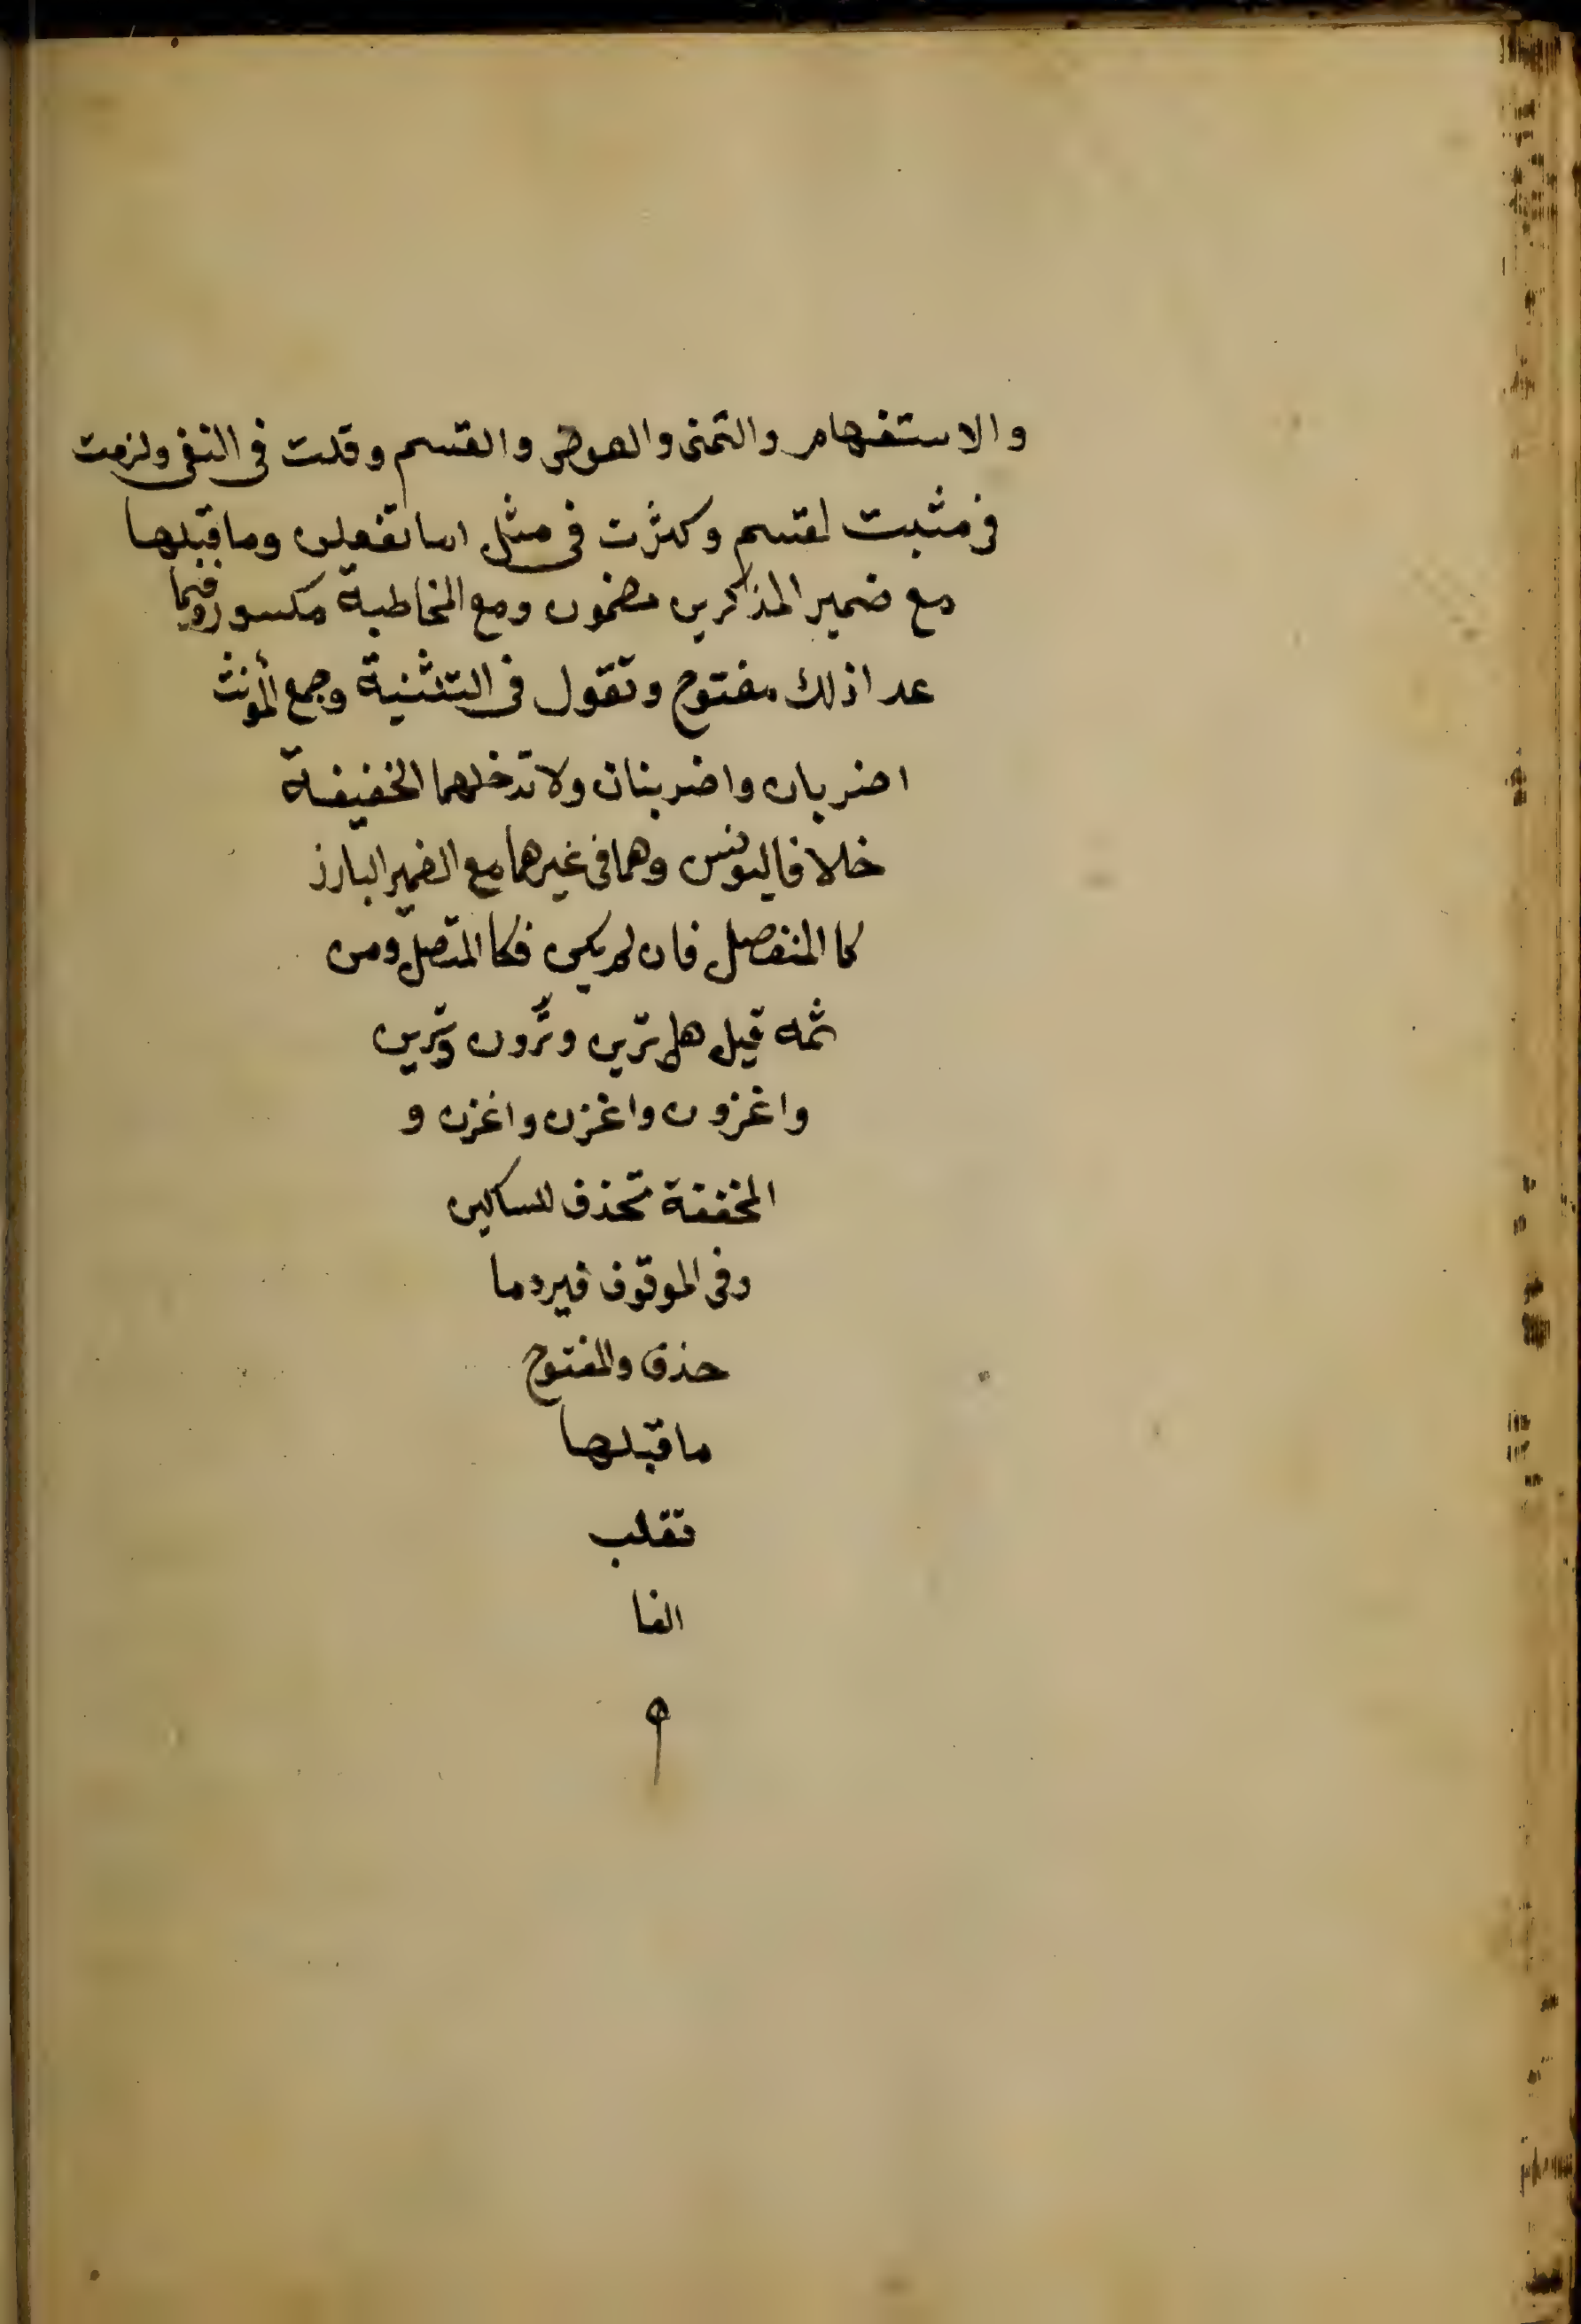 والاستفهام والتمنى والعوض والقسم وقلت فى النفى ولزمت
فى مثبت لقسم وكثرت فى مثل اما تفعلن وما قبلها
مع ضمير المذاكرين مضمون ومع المخاطبة مكسور وفيما
عدا ذلك مفتوح وتقول فى التثنية وجمع المؤنث
اضربان واضربنان ولا تدخلهما الخفيفة
خلافا ليونس وهما فى غيرهما مع الضمير البارز
كا المنفصل فان لم يكن فكا المتصل ومن
ثمه قيل هل ترين وترون وترين
واغزون واغزن واغزن و
المخففة تحذف للساكين
وفى الموقوف فيرد ما
حذف والمفتوح
ما قبلها
تقلب
الفا